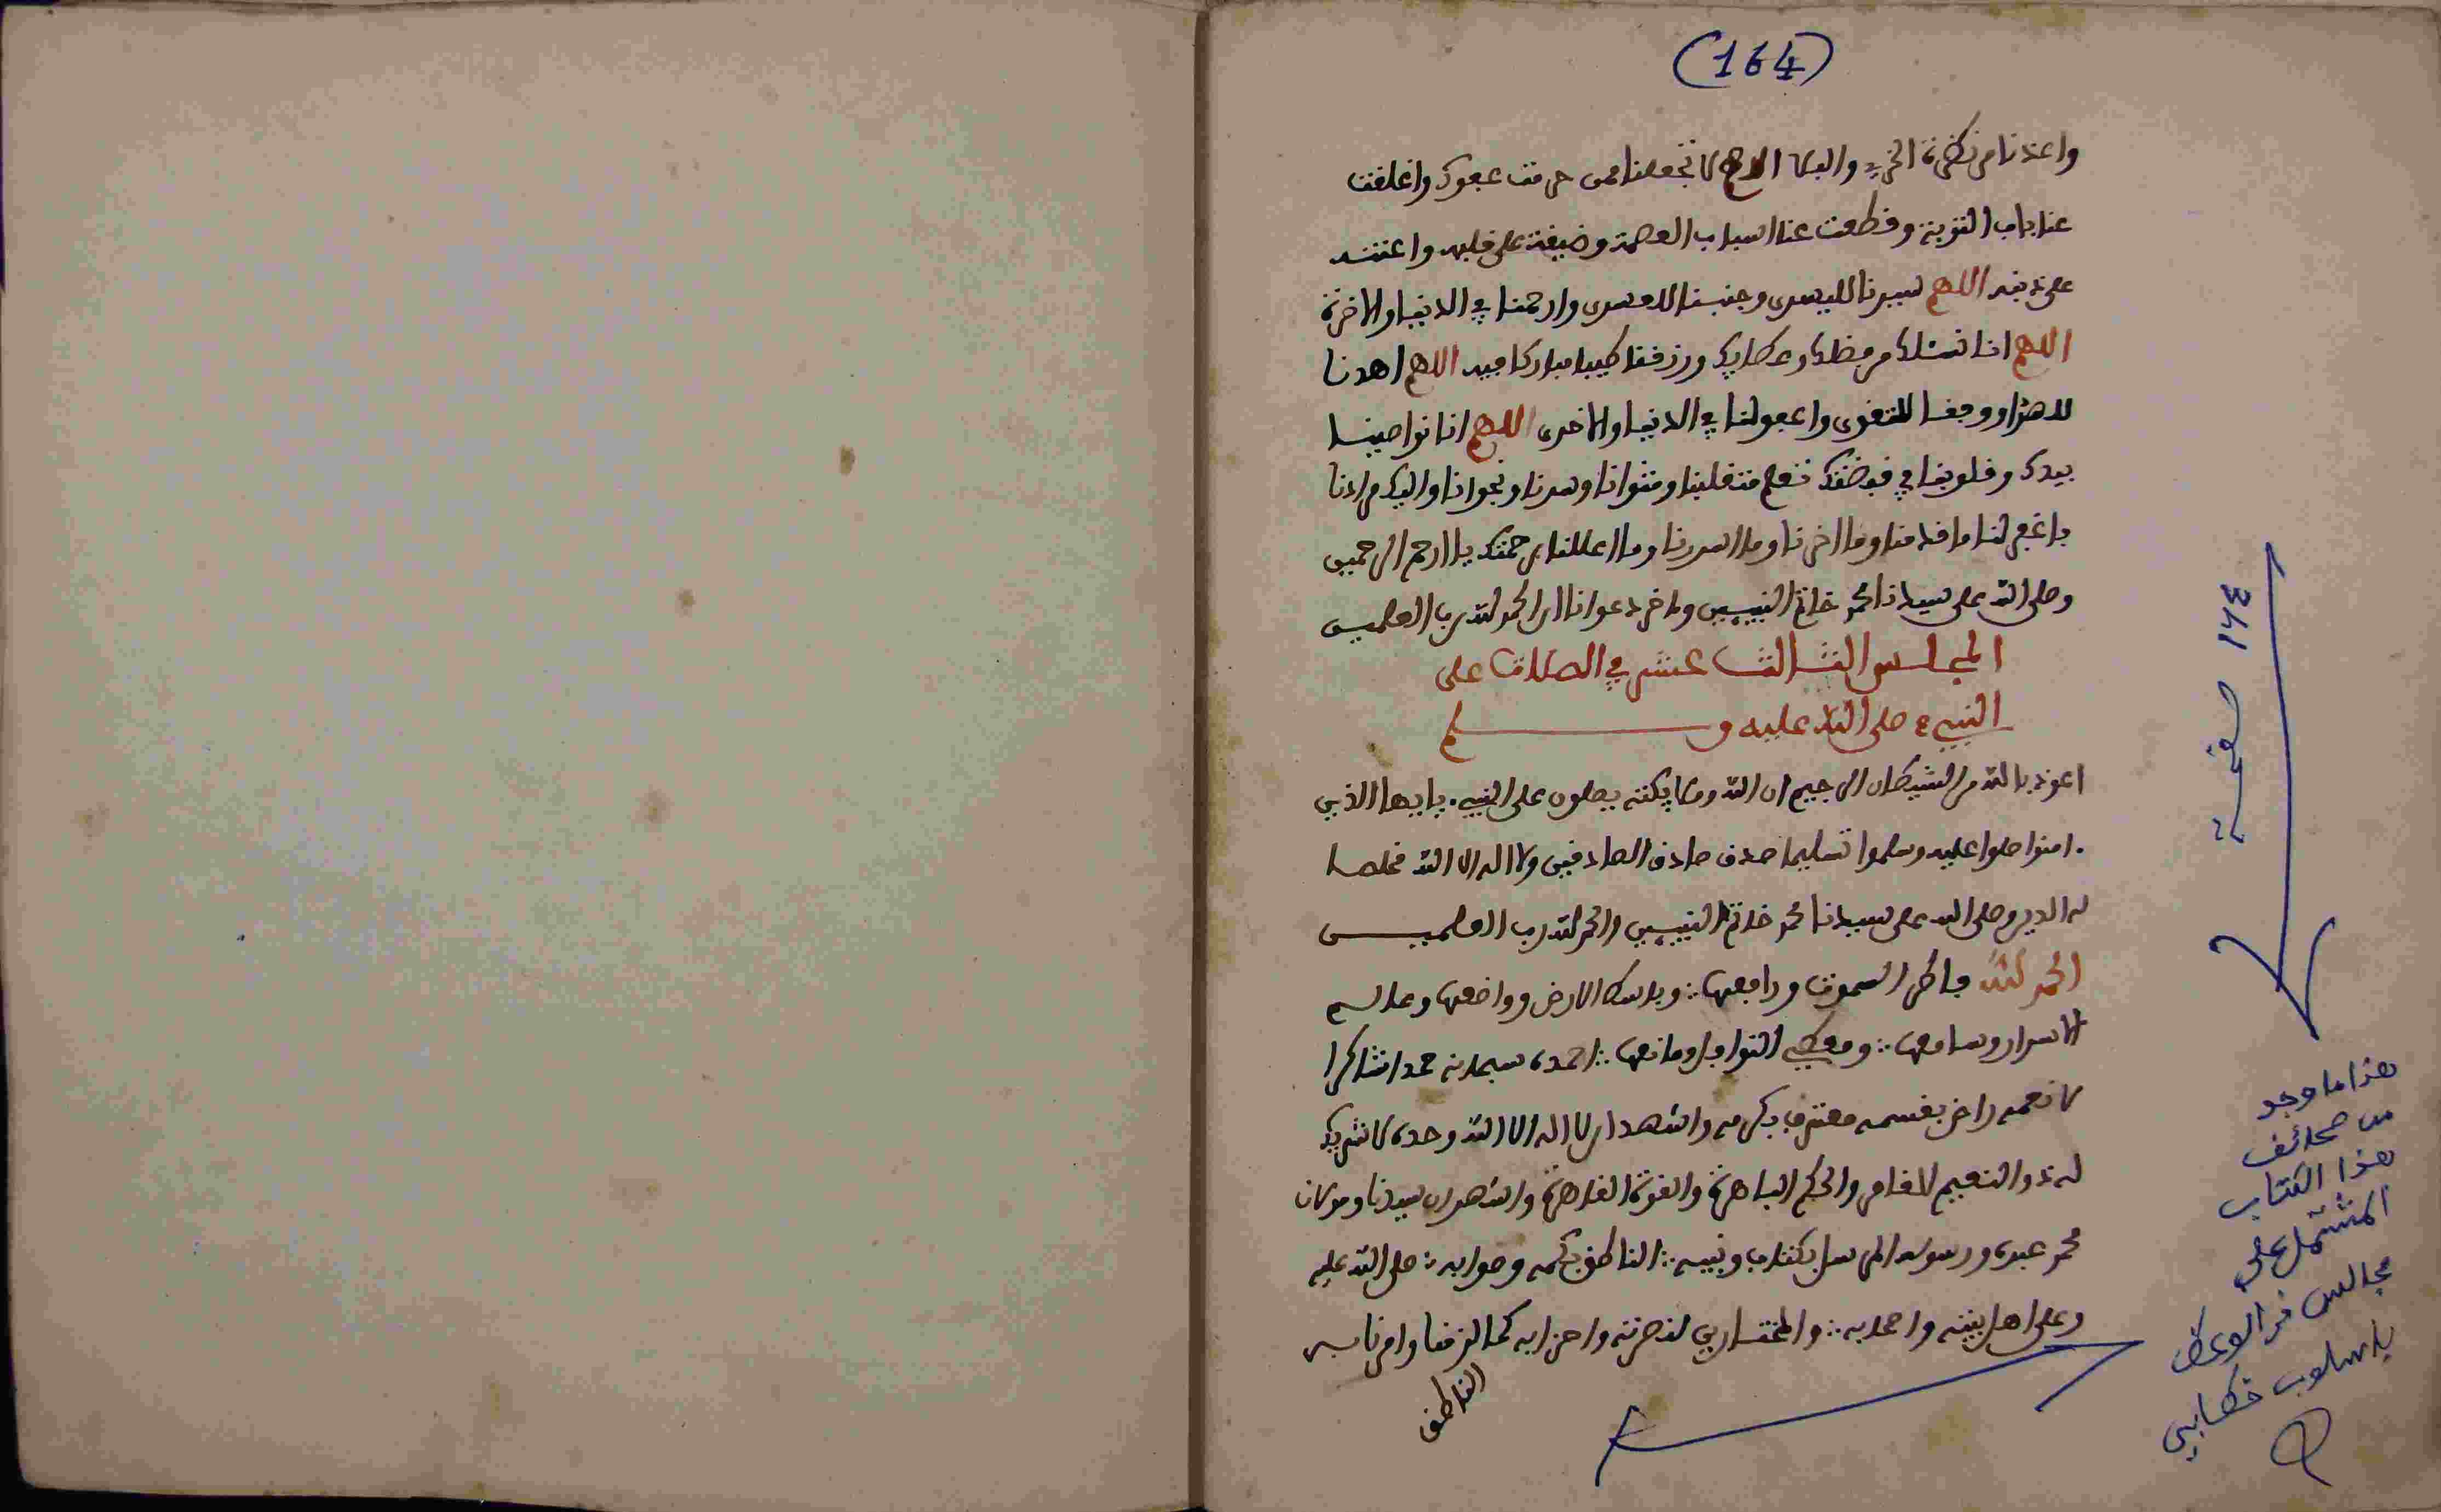 (164)
واعذنا من نظرة الخزي والبلا اللهم لا تجعلنا ممن حرمت عفوك واغلقت
عنا باب التوبة وقطعت عنا اسباب العصمة وضيقت على قلبه واعنته
على ذنبه اللهم يسرنا لليسرى وجنبنا للعسرى وارحمنا في الدنيا والاخرة
اللهم انا نسئلك من فضلك وعطايك ورزقنا طيبا مباركا فيه اللهم اهدنا
للهدى ووفقنا للتقوى واعفولنا في الدنيا والاخرى اللهم انا نواصينا
بيدك وقلوبنا في قبضتك تعلم متقلبنا ومثوانا وسرنا ونجوانا واليك مردنا
باغفر لنا ما قدمنا وما اخرنا وما اسررنا وما اعللنا برحمتك يا ارحم الرحمين
وصلى الله على سيدنا محمد خاتم النبيين واخر دعوانا ان الحمد لله رب العلمين
المجلس الثالث عشر في الصلاة على
النبيء صلى الله عليه وسلم
اعوذ بالله من الشيطان الرجيم ان الله وملايكته يصلون على النبيء يايها الذين
امنوا صلوا عليه وسلموا تسليما صدق صادق الصادقين ولا اله الا الله مخلصا
له الدين وصلى الله على سيدنا محمد خاتم النبيين والحمد لله رب العلمين
الحمد لله فاطر السموت ورافعها وباسط الارض وواضعها وعالم
الاسرار وسامعها ومعطي النوافل ومانعها احمده سبحانه حمدا شاكرا
لانعمه راض بقسمه معترف بكرمه واشهد ان لا اله الا الله وحده لا شريك
له ذو النعيم الغامر والحكم الباهرة والقوة القاهرة واشهد ان سيدنا ومولانا
محمد عبده ورسوله المرسل بكتاب ونبيه الناطق بحكمه وصوابه صلى الله عليه
وعلى اهل بيته واصحابه والمختارين لنصرته واحزابه كما الزمنا وامرنا به
الناطق
١٦٤ صفحة
هذا ما وجد
من صحائف
هذا الكتاب
المشتمل على
مجالس في الوعظ
باسلوب خطابي